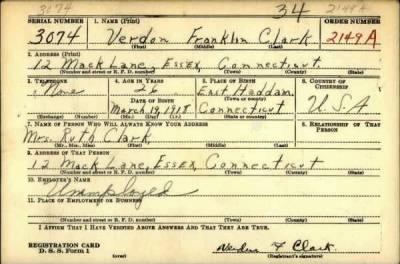 3074 34 2149A
SERIAL NUMBER 1. NAME (Print) ORDER NUMBER
3074 Verdon Franklin Clark 2149A
(First) (Middle) (Last)
2. ADDRESS (Print)
12 Mack Lane, Essex, Connecticut
(Number and street or R. F. D. number) (Town) (County) (State)
3. TELEPHONE 4. AGE IN YEARS 5. PLACE OF BIRTH 6. COUNTRY OF CITIZENSHIP
None 26 East Haddam,
DATE OF BIRTH (Town or county)
March 19, 1915 Connecticut U.S.A
(Exchange) (Number) (Mo.) (Day) (Yr.) (State or country)
7. NAME OF PERSON WHO WILL ALWAYS KNOW YOUR ADDRESS 8. RELATIONSHIP OF THAT PERSON
Mrs. Ruth Clark
(Mr., Mrs., Miss) (First) (Middle) (Last)
9. ADDRESS OF THAT PERSON
12 Mack Lane, Essex, Connecticut
(Number and street or R. F. D. number) (Town) (County) (State)
10. EMPLOYER'S NAME
Unemployed
11. PLACE OF EMPLOYMENT OR BUSINESS
(Number and street or R. F. D. number) (Town) (County) (State)
I AFFIRM THAT I HAVE VERIFIED ABOVE ANSWERS AND THAT THEY ARE TRUE.
REGISTRATION CARD
D. S. S. Form 1 (over) Verdon F Clark
(Registrant's signature)